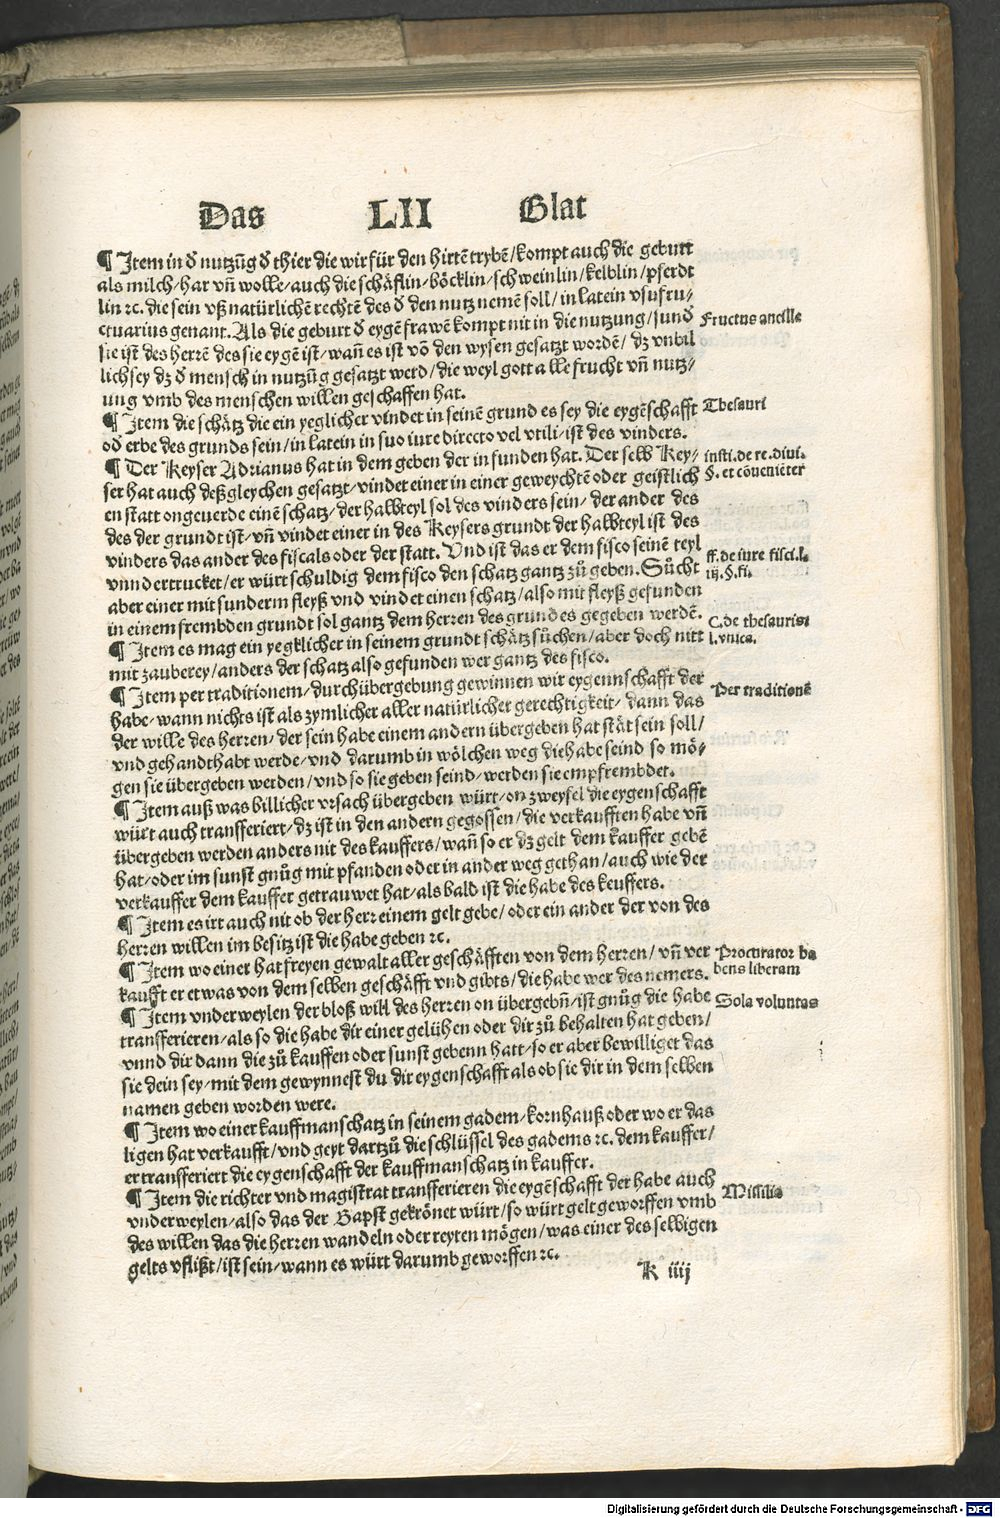 Das LII Blat
¶ Item in d̕ nutzūg d̕ thier die wir für den hirtē trybē/kompt auch die geburt
als milch/har vn̄ wolle/auch die schäflin/böcklin/schweinlin/kelblin/pferdt
lin ꝛc. die sein vß natürlichē rechtē des d̕ den nutz nemē soll/in latein vsufru/
ctuarius genant. Als die geburt d̕ eygē frawē kompt nit in die nutzung/sund̕
Fructus ancille
sie ist des herrē des sie eygē ist/wan̄ es ist vō den wysen gesatzt wordē/dz vnbil
lich sey dz d̕ mensch in nutzūg gesatzt werd/die weyl gott alle frucht vn̄ nutz/
ung vmb des menschen willen geschaffen hat.
¶ Item die schätz die ein yeglicher vindet in seinē grund es sey die eygēschafft
Thesauri
od̕ erbe des grunds sein/in latein in suo iure directo vel vtili/ist des vinders.
¶ Der Keyser Adrianus hat in dem geben der in funden hat. Der selb Key/
insti. de re. diui.
ser hat auch deßgleychen gesatzt/vindet einer in einer geweychtē oder geistlich
§. et cōueniēter
en statt ongeuerde einē schatz/der halbteyl sol des vinders sein/der ander des
des der grundt ist/vn̄ vindet einer in des Keysers grundt der halbteyl ist des
vinders das ander des fiscals oder der statt. Vnd ist das er dem fisco seinē teyl
vnndertrucket/er würt schuldig dem fisco den schatz gantz zů geben. Sůcht
ff. de iure fisci. l.
iij. §. fi.
aber einer mit sunderm fleyß vnd vindet einen schatz/also mit fleyß gefunden
in einem frembden grundt sol gantz dem herren des grundes gegeben werdē.
C. de thesauris
¶ Item es mag ein yegklicher in seinem grundt schätz sůchen/aber doch nitt
l. vnica.
mit zauberey/anders der schatz also gefunden wer gantz des fisco.
¶ Item per traditionem/durch übergebung gewinnen wir eygennschafft der
Per traditionē
habe/wann nichts ist als zymlicher aller natürlicher gerechtigkeit/dann das
der wille des herren/der sein habe einem andern übergeben hat stät sein soll/
vnd gehandthabt werde/vnd darumb in wölchen weg die habe seind so mö/
gen sie übergeben werden/vnd so sie geben seind/werden sie empfrembdet.
¶ Item auß was billicher vrsach übergeben würt/on zweyfel die eygenschafft
würt auch transferiert/dz ist in den andern gegossen/die verkaufften habe vn̄
übergeben werden anders nit des kauffers/wan̄ so er dz gelt dem kauffer gebē
hat/oder im sunst gnůg mit pfanden oder in ander weg gethan/auch wie der
verkauffer dem kauffer getrauwet hat/als bald ist die habe des keuffers.
¶ Item es irt auch nit ob der herr einem gelt gebe/oder ein ander der von des
herren willen im besitz ist die habe geben ꝛc.
¶ Item wo einer hat freyen gewalt aller geschäfften von dem herren/vn̄ ver
Procurator ha
kaufft er etwas von dem selben geschäfft vnd gibts/die habe wer des nemers.
bens liberam
¶ Item vnderweylen der bloß will des herren on übergebn̄/ist gnůg die habe
Sola voluntas
transferieren/als so die habe dir einer gelühen oder dir zů behalten hat geben/
vnnd dir dann die zů kauffen oder sunst gebenn hatt/so er aber bewilliget das
sie dein sey/mit dem gewynnest du dir eygenschafft als ob sie dir in dem selben
namen geben worden were.
¶ Item wo einer kauffmanschatz in seinem gadem/kornhauß oder wo er das
ligen hat verkaufft/vnd geyt dartzů die schlüssel des gadems ꝛc. dem kauffer/
er transferiert die eygenschafft der kauffmanschatz in kauffer.
¶ Item die richter vnd magistrat transferieren die eygēschafft der habe auch
Missilia
vnderweylen/also das der Bapst gekrönet würt/so würt gelt geworffen vmb
des willen das die herren wandeln oder reyten mögen/was einer des selbigen
gelts vflißt/ist sein/wann es würt darumb geworffen ꝛc.
K iiij
Digitalisierung gefördert durch die Deutsche Forschungsgemeinschaft - DFG